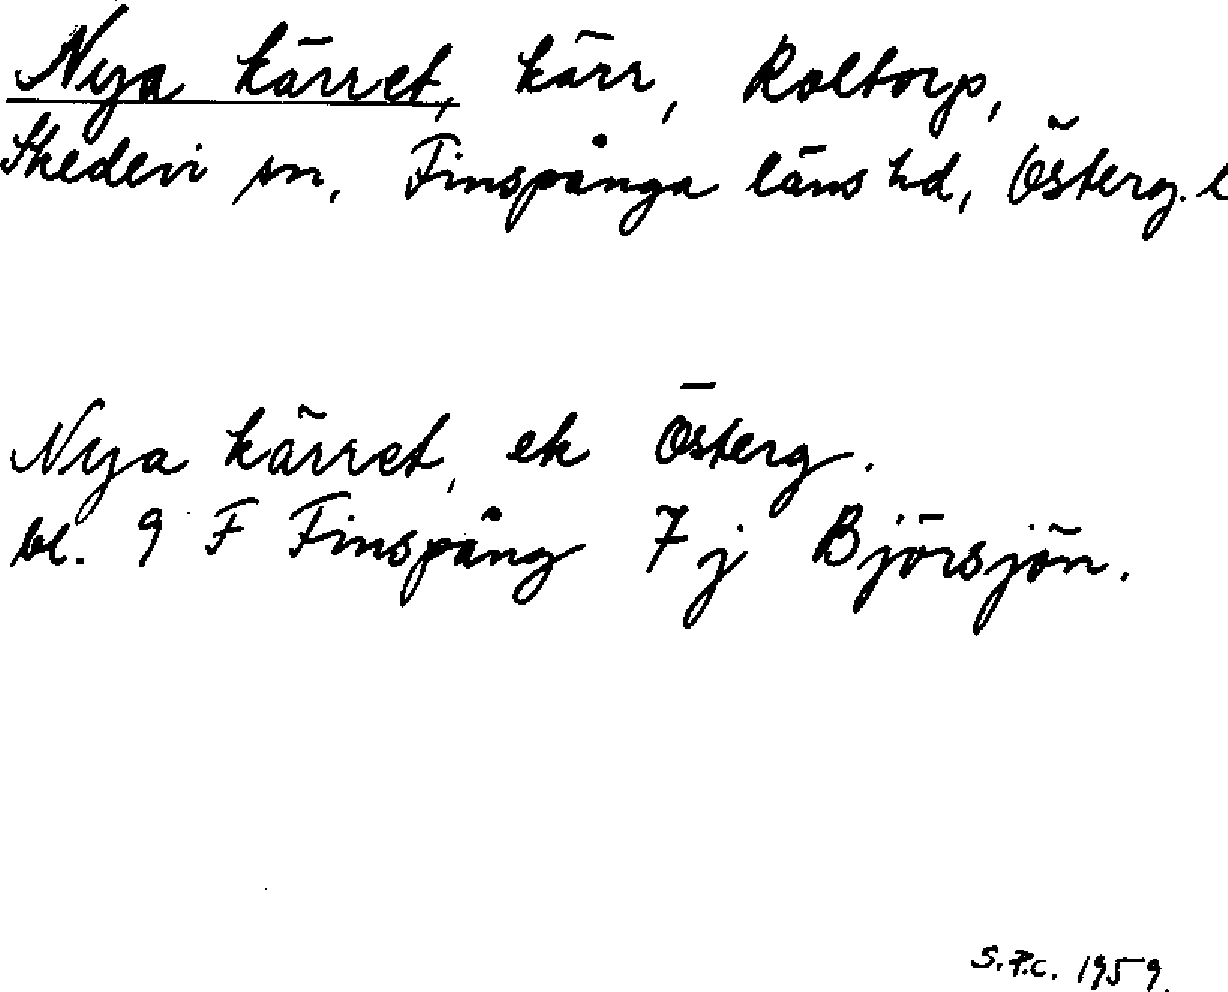 Nya kärret, kärr, Roltorp,
Skedevi sn, Finspånga läns hd, Österg. l
Nya kärret, ek Österg.
bl. 9 F Finspång 7 j Björsjön.
S.P.c. 1959.